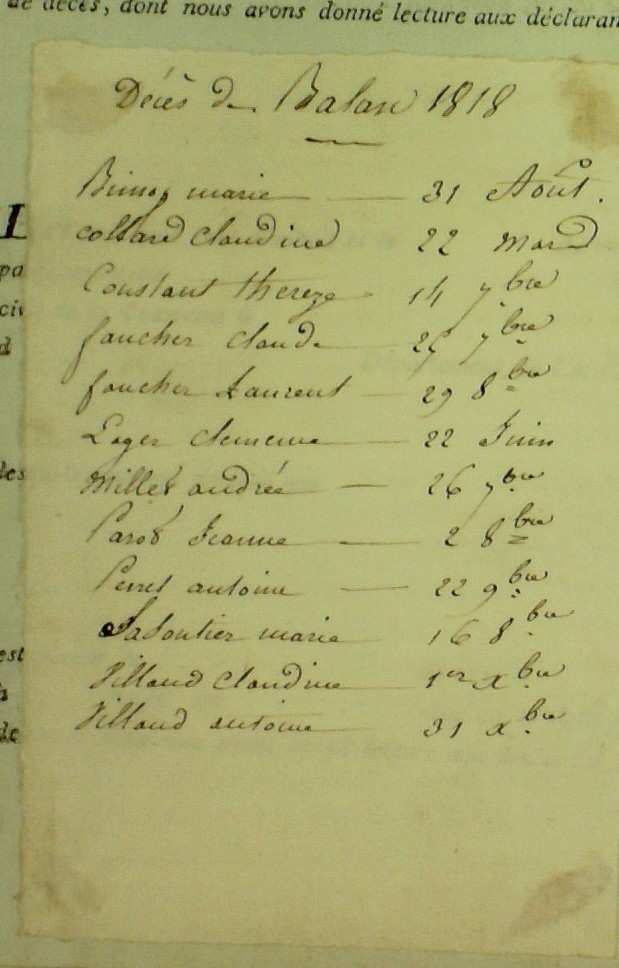 de décès, dont nous avons donné lecture aux déclaran
Décès de Balan 1818
marie 31 Août.
collard claudine 22 mars
Constant thereze 14 7bre
faucher claude 7bre
faucher Laurent 29 8bre
Loger clemence 22 Juin
Millet andrée 26 7bre
Parot Jeanne 2 8bre
Perret antoine 22 9bre
Sabontier marie 16 8bre
Villaud claudine 1er xbre
Villaud antoine 31 xbre
L
pa
civ
d
des
est
de